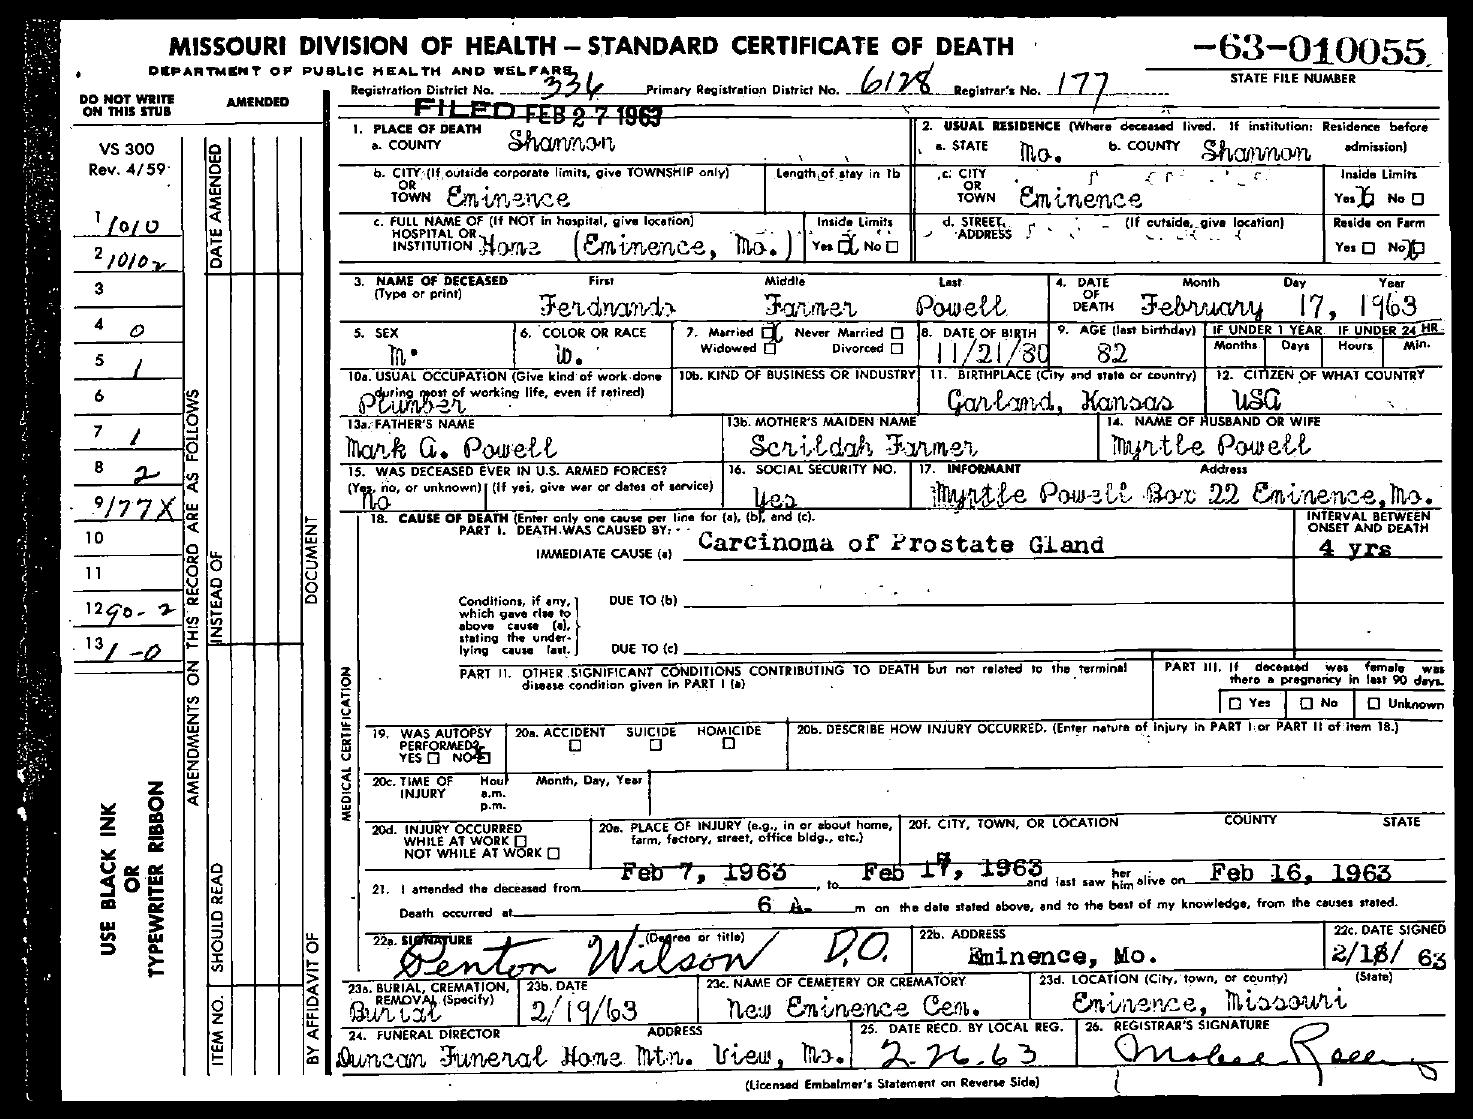 MISSOURI DIVISION OF HEALTH – STANDARD CERTIFICATE OF DEATH
-63-010055
DEPARTMENT OF PUBLIC HEALTH AND WELFARE
STATE FILE NUMBER
Registration District No. 336 Primary Registration District No. 6128 Registrar's No. 177
DO NOT WRITE ON THIS STUB
AMENDED
FILED FEB 27 1963
VS 300
Rev. 4/59
1 1010
2 10102
3
4 0
5 1
6
7 1
8 2
9 177X
10
11
12 90-2
13 1-0
USE BLACK INK
OR
TYPEWRITER RIBBON
AMENDMENTS ON THIS RECORD ARE AS FOLLOWS
DATE AMENDED
INSTEAD OF
SHOULD READ
ITEM NO.
DOCUMENT
BY AFFIDAVIT OF
MEDICAL CERTIFICATION
1. PLACE OF DEATH
a. COUNTY Shannon
2. USUAL RESIDENCE (Where deceased lived. If institution: Residence before admission)
a. STATE Mo. b. COUNTY Shannon
b. CITY (If outside corporate limits, give TOWNSHIP only)
OR
TOWN Eminence
Length of stay in 1b
c. CITY
OR
TOWN Eminence
Inside Limits
Yes X No
c. FULL NAME OF (If NOT in hospital, give location)
HOSPITAL OR
INSTITUTION Home (Eminence, Mo.)
Inside Limits
Yes X No
d. STREET ADDRESS
(If outside, give location)
Reside on Farm
Yes No X
3. NAME OF DECEASED
(Type or print)
First Middle Last
Ferdnando Farmer Powell
4. DATE OF DEATH
Month Day Year
February 17, 1963
5. SEX
M.
6. COLOR OR RACE
W.
7. Married X Never Married
Widowed Divorced
8. DATE OF BIRTH
11/21/80
9. AGE (last birthday)
82
IF UNDER 1 YEAR IF UNDER 24 HR.
Months Days Hours Min.
10a. USUAL OCCUPATION (Give kind of work done during most of working life, even if retired)
Plumber
10b. KIND OF BUSINESS OR INDUSTRY
11. BIRTHPLACE (City and state or country)
Garland, Kansas
12. CITIZEN OF WHAT COUNTRY
USA
13a. FATHER'S NAME
Mark A. Powell
13b. MOTHER'S MAIDEN NAME
Scrildah Farmer
14. NAME OF HUSBAND OR WIFE
Myrtle Powell
15. WAS DECEASED EVER IN U.S. ARMED FORCES?
(Yes, no, or unknown) (If yes, give war or dates of service)
No
16. SOCIAL SECURITY NO.
Yes
17. INFORMANT Address
Myrtle Powell Box 22 Eminence, Mo.
18. CAUSE OF DEATH (Enter only one cause per line for (a), (b), and (c).
PART I. DEATH WAS CAUSED BY:
IMMEDIATE CAUSE (a) Carcinoma of Prostate Gland
INTERVAL BETWEEN ONSET AND DEATH
4 yrs
Conditions, if any, which gave rise to above cause (a), stating the underlying cause last.
DUE TO (b)
DUE TO (c)
PART II. OTHER SIGNIFICANT CONDITIONS CONTRIBUTING TO DEATH but not related to the terminal disease condition given in PART I (a)
PART III. If deceased was female was there a pregnancy in last 90 days.
Yes No Unknown
19. WAS AUTOPSY PERFORMED?
YES NO X
20a. ACCIDENT SUICIDE HOMICIDE
20b. DESCRIBE HOW INJURY OCCURRED. (Enter nature of injury in PART I or PART II of item 18.)
20c. TIME OF INJURY
Hour Month, Day, Year
a.m.
p.m.
20d. INJURY OCCURRED
WHILE AT WORK
NOT WHILE AT WORK
20e. PLACE OF INJURY (e.g., in or about home, farm, factory, street, office bldg., etc.)
20f. CITY, TOWN, OR LOCATION COUNTY STATE
21. I attended the deceased from Feb 7, 1963, to Feb 17, 1963 and last saw her him alive on Feb 16, 1963
Death occurred at 6 A. m on the date stated above, and to the best of my knowledge, from the causes stated.
22a. SIGNATURE (Degree or title)
Denton Wilson D.O.
22b. ADDRESS
Eminence, Mo.
22c. DATE SIGNED
2/18/63
23a. BURIAL, CREMATION, REMOVAL (Specify)
Burial
23b. DATE
2/19/63
23c. NAME OF CEMETERY OR CREMATORY
New Eminence Cem.
23d. LOCATION (City, town, or county) (State)
Eminence, Missouri
24. FUNERAL DIRECTOR ADDRESS
Duncan Funeral Home Mtn. View, Mo.
25. DATE RECD. BY LOCAL REG.
2-26-63
26. REGISTRAR'S SIGNATURE
(Licensed Embalmer's Statement on Reverse Side)